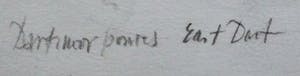 Dartmoor ponies East Dart